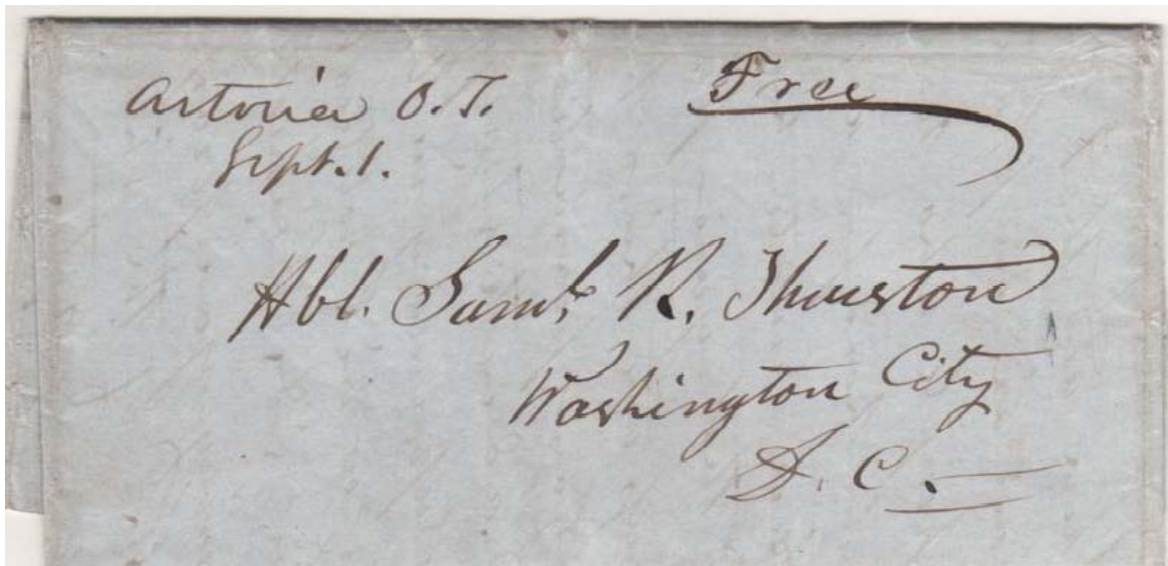 Astoria O.T.
Sept. 1.
Free
Hbl. Saml. R. Thurston
Washington City
D. C.